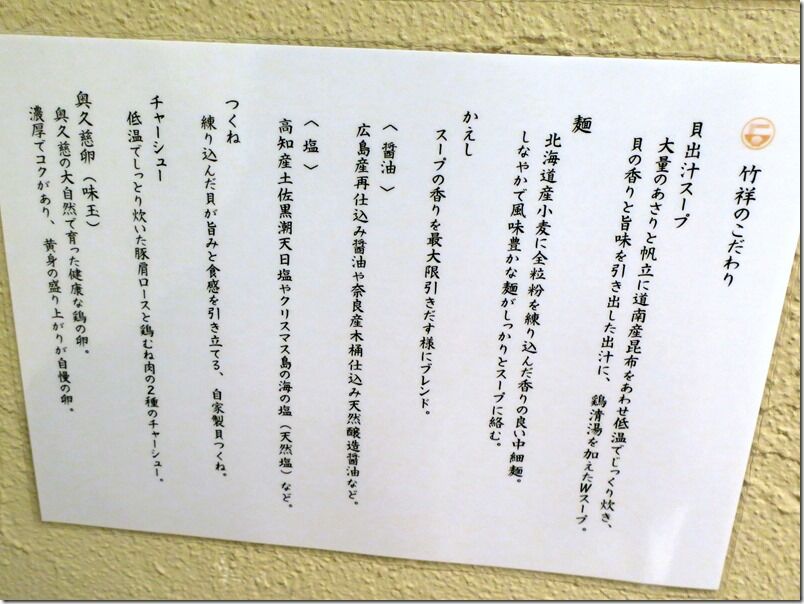 竹祥のこだわり
貝出汁スープ
大量のあさりと帆立に道南産昆布をあわせ低温でじっくり炊き、
貝の香りと旨味を引き出した出汁に、鶏清湯を加えたWスープ。
麺
北海道産小麦に全粒粉を練り込んだ香りの良い中細麺。
しなやかで風味豊かな麺がしっかりとスープに絡む。
かえし
スープの香りを最大限引きだす様にブレンド。
〈醤油〉
広島産再仕込み醤油や奈良産木桶仕込み天然醸造醤油など。
〈塩〉
高知産土佐黒潮天日塩やクリスマス島の海の塩（天然塩）など。
つくね
練り込んだ貝が旨みと食感を引き立てる、自家製貝つくね。
チャーシュー
低温でしっとり炊いた豚肩ロースと鶏むね肉の2種のチャーシュー。
奥久慈卵（味玉）
奥久慈の大自然で育った健康な鶏の卵。
濃厚でコクがあり、黄身の盛り上がりが自慢の卵。